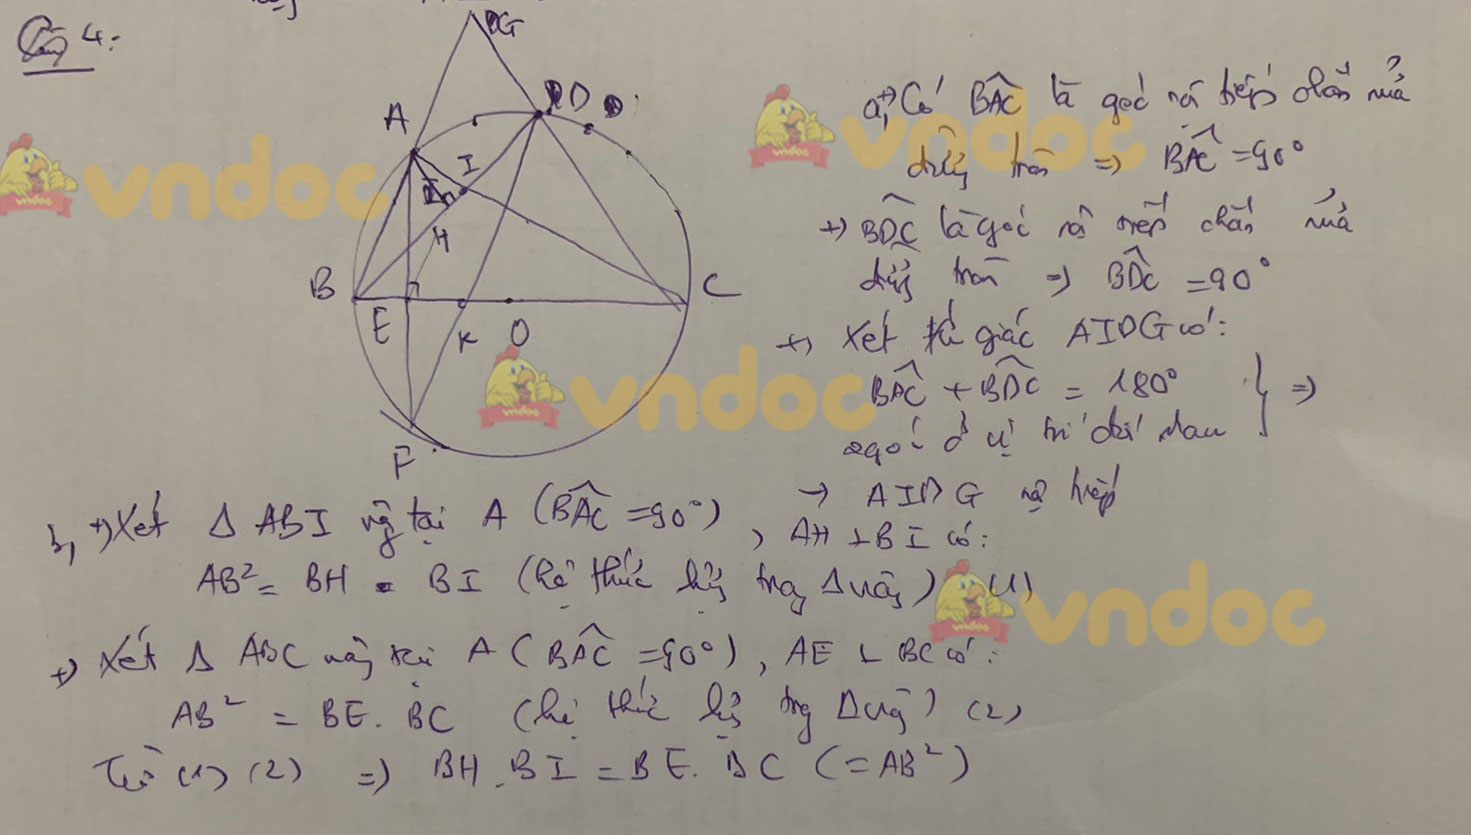 Câu 4:
G
D
A
I
H
B
C
E
K
O
F
a, +) Có BAC là góc nội tiếp chắn nửa
đường tròn => BAC = 90°
+) BDC là góc nội tiếp chắn nửa
đường tròn => BDC = 90°
+) Xét tứ giác AIDG có:
BAC + BDC = 180°
2 góc ở vị trí đối nhau } =>
→ AIDG nội tiếp
b, +) Xét Δ ABI vg tại A (BAC = 90°), AH ⊥ BI có:
AB² = BH . BI (hệ thức lượng trong Δ vuông) (1)
+) Xét Δ ABC vuông tại A (BAC = 90°), AE ⊥ BC có:
AB² = BE . BC (hệ thức lượng trong Δ vuông) (2)
Từ (1) (2) => BH . BI = BE . BC (= AB²)
vndoc
vndoc
vndoc
vndoc